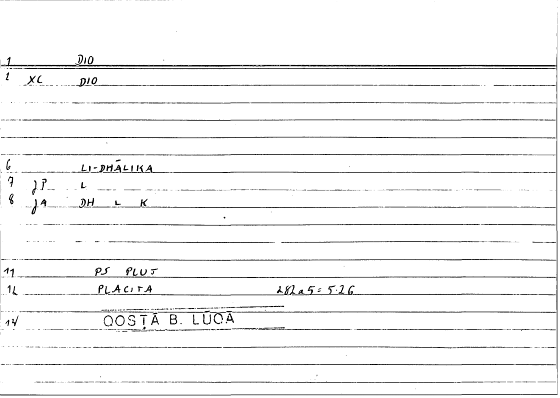 1 DIO
2 XL DIO
6 LI-DHĀLIKA
7 JP L
8 JA DH L K
11 PS PLUT
12 PLACITA 282a5 = 5.26
14 QOSṬĀ B. LŪQĀ